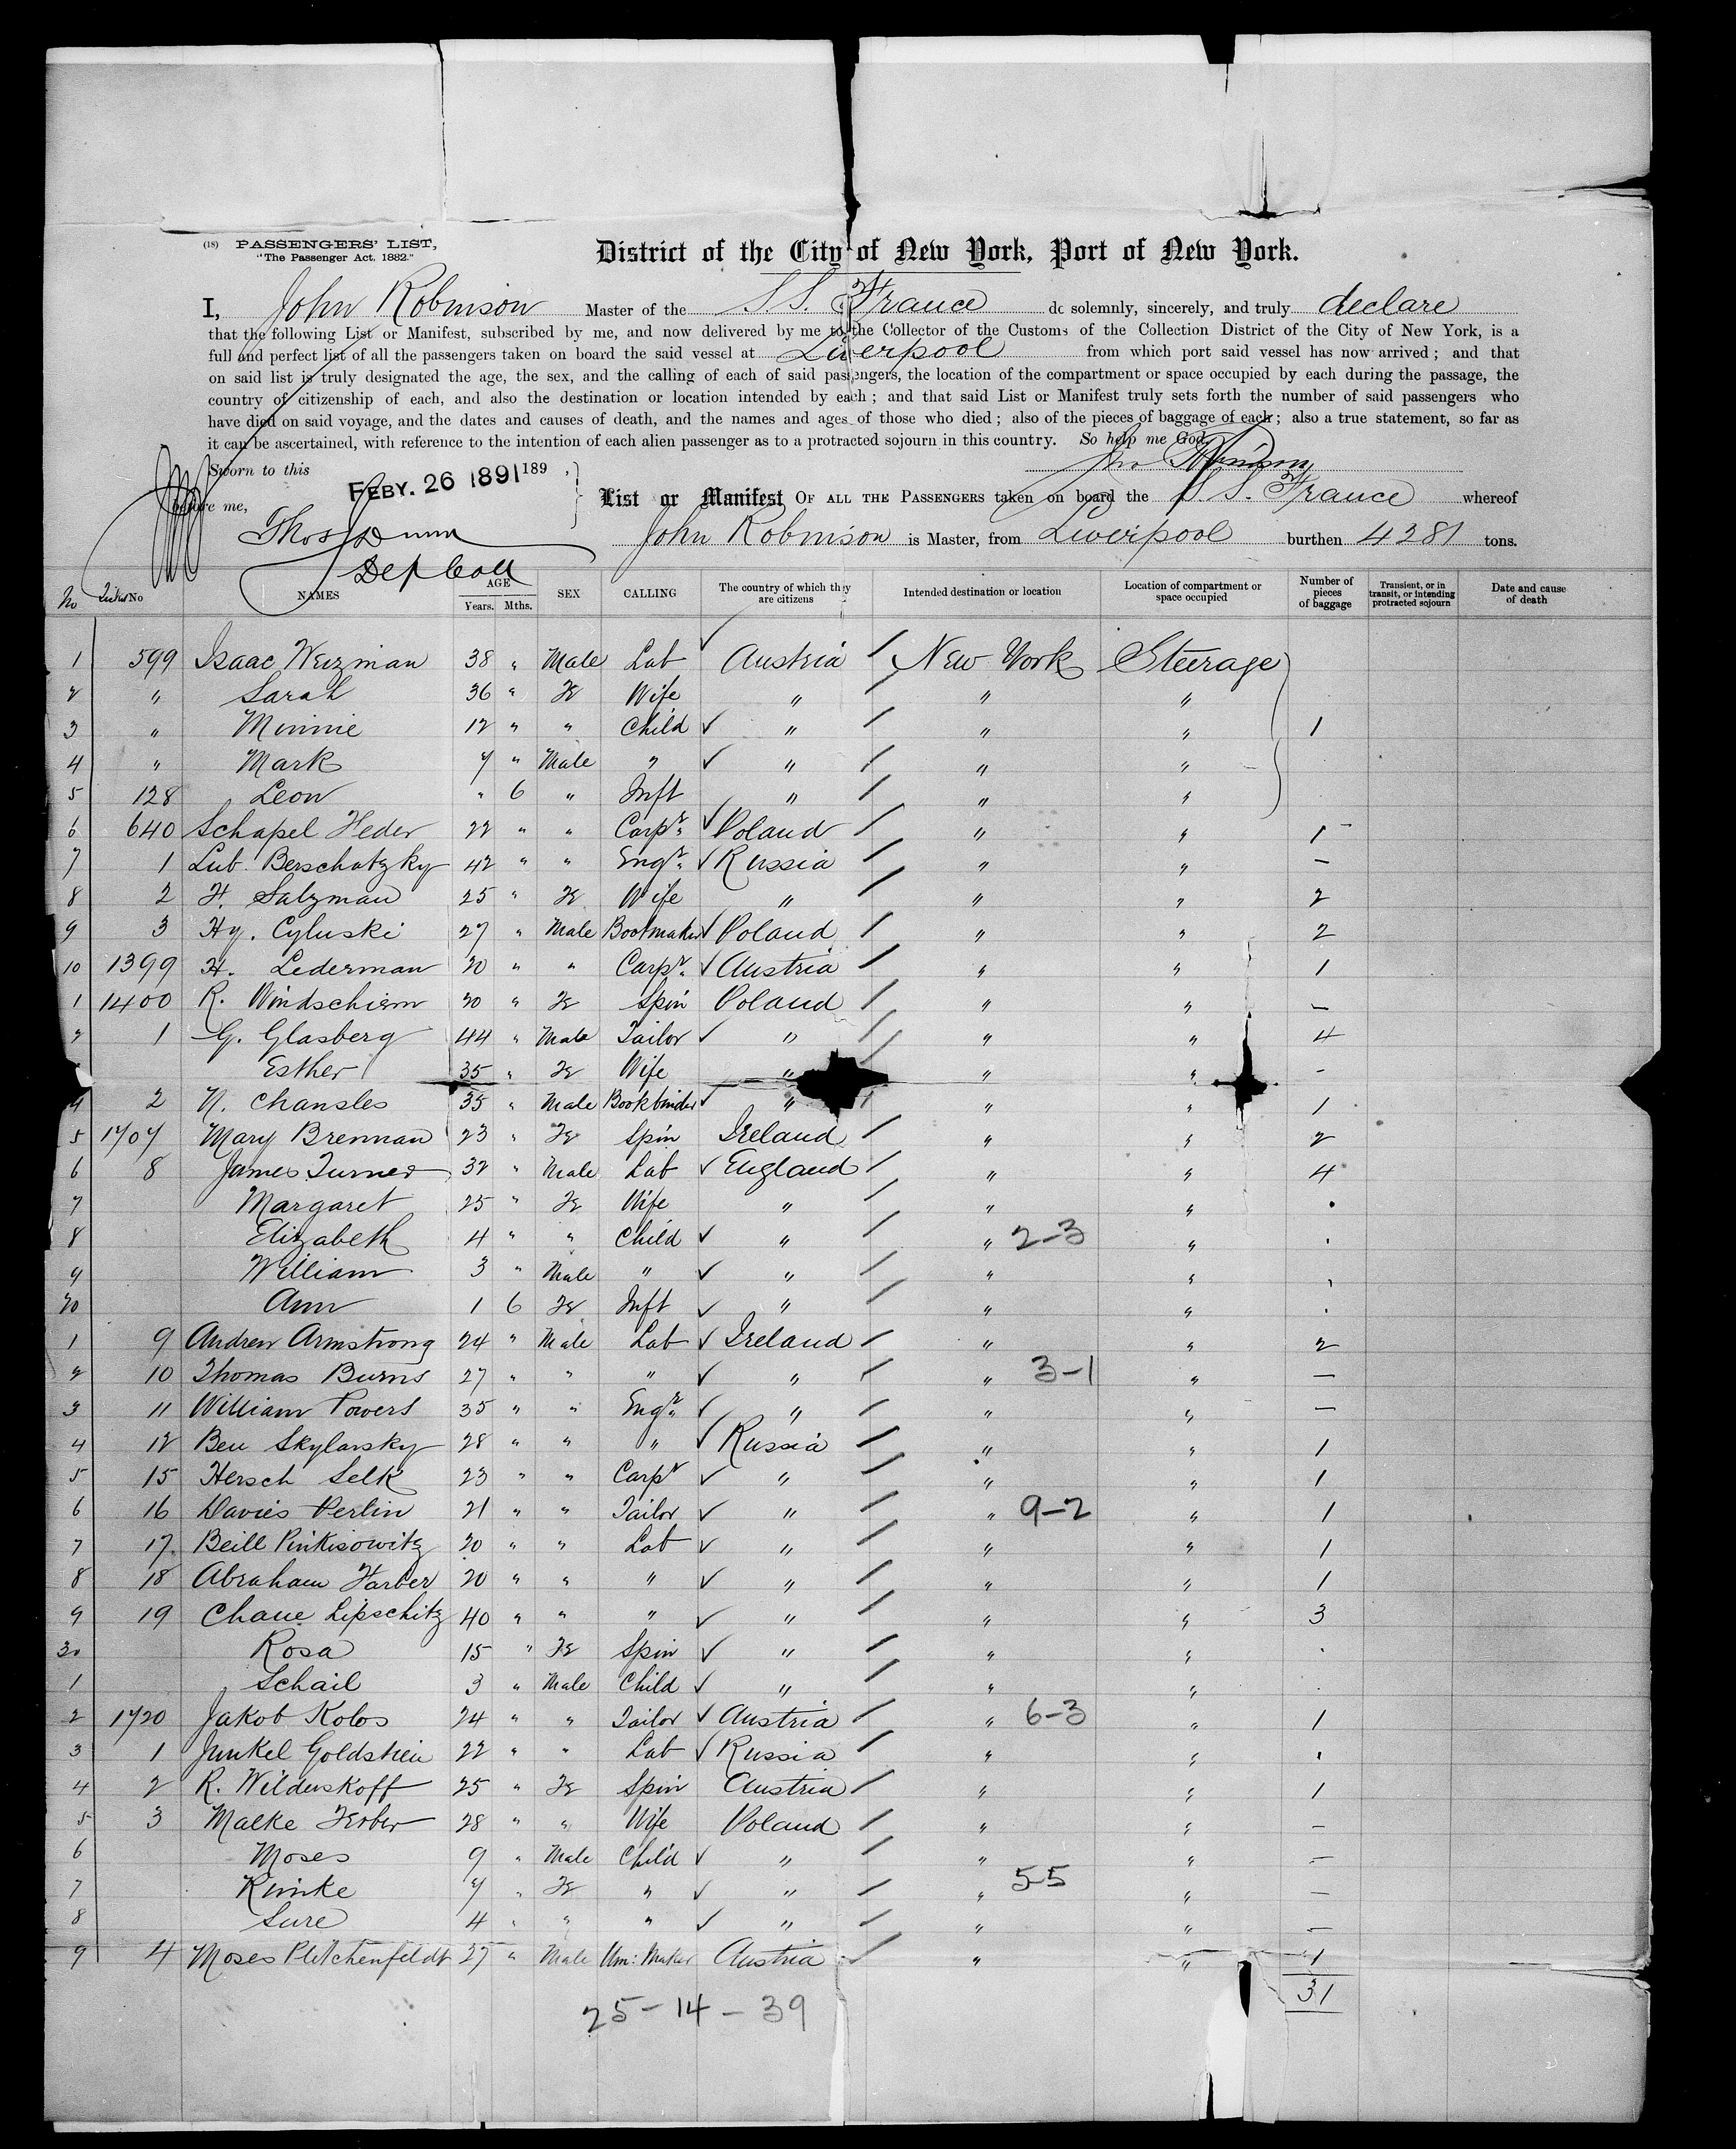 (18) PASSENGERS' LIST,
"The Passenger Act, 1882."
District of the City of New York, Port of New York.
I, John Robinson Master of the S.S. France do solemnly, sincerely, and truly declare
that the following List or Manifest, subscribed by me, and now delivered by me to the Collector of the Customs of the Collection District of the City of New York, is a
full and perfect list of all the passengers taken on board the said vessel at Liverpool from which port said vessel has now arrived ; and that
on said list is truly designated the age, the sex, and the calling of each of said passengers, the location of the compartment or space occupied by each during the passage, the
country of citizenship of each, and also the destination or location intended by each ; and that said List or Manifest truly sets forth the number of said passengers who
have died on said voyage, and the dates and causes of death, and the names and ages of those who died ; also of the pieces of baggage of each ; also a true statement, so far as
it can be ascertained, with reference to the intention of each alien passenger as to a protracted sojourn in this country. So help me God
Jno Robinson
Sworn to this FEBY. 26 1891 189 ,
before me,
Thos Dunn
Dep Coll
List or Manifest OF ALL THE PASSENGERS taken on board the S S. France whereof
John Robinson is Master, from Liverpool burthen 4281 tons.
No Ticket No NAMES AGE Years. Mths. SEX CALLING The country of which they are citizens Intended destination or location Location of compartment or space occupied Number of pieces of baggage Transient, or in transit, or intending protracted sojourn Date and cause of death
1 599 Isaac Weizman 38 " Male Lab Austria / New York Steerage
2 " Sarah 36 " Fe Wife " / " "
3 " Minnie 12 " " Child ✓ " / " " 1
4 " Mark 7 " Male " ✓ " / " "
5 128 Leon " 6 " Inft " / " "
6 640 Schapel Heder 22 " " Carpr ✓ Poland / " " 1
7 1 Lub. Berschatzky 42 " " Engr ✓ Russia / " " —
8 2 H. Salzman 25 " Fe Wife " / " " 2
9 3 Hy. Cyluski 27 " Male Bootmaker ✓ Poland / " " 2
10 1399 H. Lederman 20 " " Carpr ✓ Austria / " " 1
1 1400 R. Windschiem 20 " Fe Spin Poland / " " —
2 1 G. Glasberg 44 " Male Tailor ✓ " / " " 4
Esther 35 " Fe Wife " " " -
4 2 N. Chansles 35 " Male Bookbinder ✓ " / " " 1
5 1707 Mary Brennan 23 " Fe Spin Ireland / " " 2
6 8 James Turner 32 " Male Lab ✓ England / " " 4
7 Margaret 25 " Fe Wife " / " " .
8 Elizabeth 4 " " Child ✓ " / " 2-3 " .
9 William 3 " Male " ✓ " / " " .
20 Ann 1 6 Fe Inft ✓ " / " " .
1 9 Andrew Armstrong 24 " Male Lab ✓ Ireland / " " 2
2 10 Thomas Burns 27 " " " ✓ " / " 3-1 " —
3 11 William Powers 35 " " Engr ✓ " / " " —
4 12 Ben Skylarsky 28 " " " ✓ Russia / " " 1
5 15 Hersch Selk 23 " " Carpr ✓ " / " " 1
6 16 Davies Perlin 21 " " Tailor ✓ " / " 9-2 " 1
7 17 Beill Pinkisowitz 20 " " Lab ✓ " / " " 1
8 18 Abraham Farber 20 " " " ✓ " / " " 1
9 19 Chane Lipschitz 40 " " " ✓ " / " " 3
30 Rosa 15 " Fe Spin ✓ " / " " .
1 Schail 3 " Male Child ✓ " / " " .
2 1720 Jakob Kolos 24 " " Tailor ✓ Austria / " 6-3 " 1
3 1 Junkel Goldstein 22 " " Lab ✓ Russia / " " .
4 2 R. Wilderskoff 25 " Fe Spin Austria / " " 1
5 3 Malke Ferber 28 " " Wife Poland / " " —
6 Moses 9 " Male Child ✓ " / " " —
7 Rimke 7 " Fe " ✓ " / " 5-5 " —
8 Sure 4 " " " ✓ " / " " —
9 4 Moses Plitchenfeldt 27 " Male Um: Maker Austria / " " 1
31
25 - 14 - 39